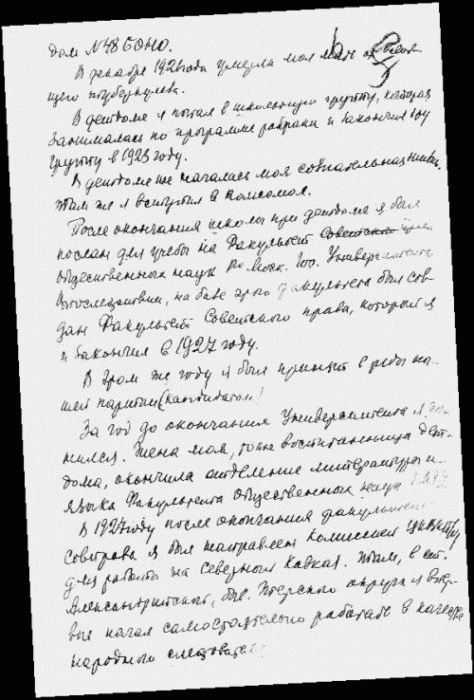 дом № 48 БОНО.
В декабре 1921 года умерла моя мать от
щего туберкулеза.
В детдоме я попал в школьную группу, которая
занималась по программе рабфака и закончил эту
группу в 1923 году.
В детдоме же началась моя сознательная жизнь.
Там же я вступил в комсомол.
После окончания школы при детдоме я был
послан для учебы на Факультет Советского права
общественных наук Моск. Гос. Университета
Впоследствии, на базе этого факультета был соз-
дан Факультет Советского права, который я
и закончил в 1927 году.
В этом же году я был принят в ряды на-
шей партии (кандидатом)
За год до окончания Университета я же-
нился. Жена моя, тоже воспитанница дет-
дома, окончила отделение литературы и
языка Факультета общественных наук
В 1927 году после окончания факультета
совправа я был направлен комиссией
для работы на Северный Кавказ. Там, в ст.
Александрийской, быв. Терского округа я впер-
вые начал самостоятельно работать в качестве
народного следователя